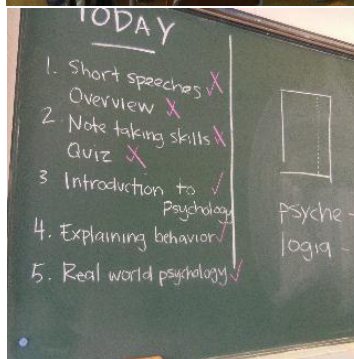 TODAY
1. Short speeches X
Overview X
2. Note taking skills X
Quiz X
3 Introduction to ✓
Psychology
4. Explaining behavior ✓
5. Real world psychology ✓
psyche -
logia -